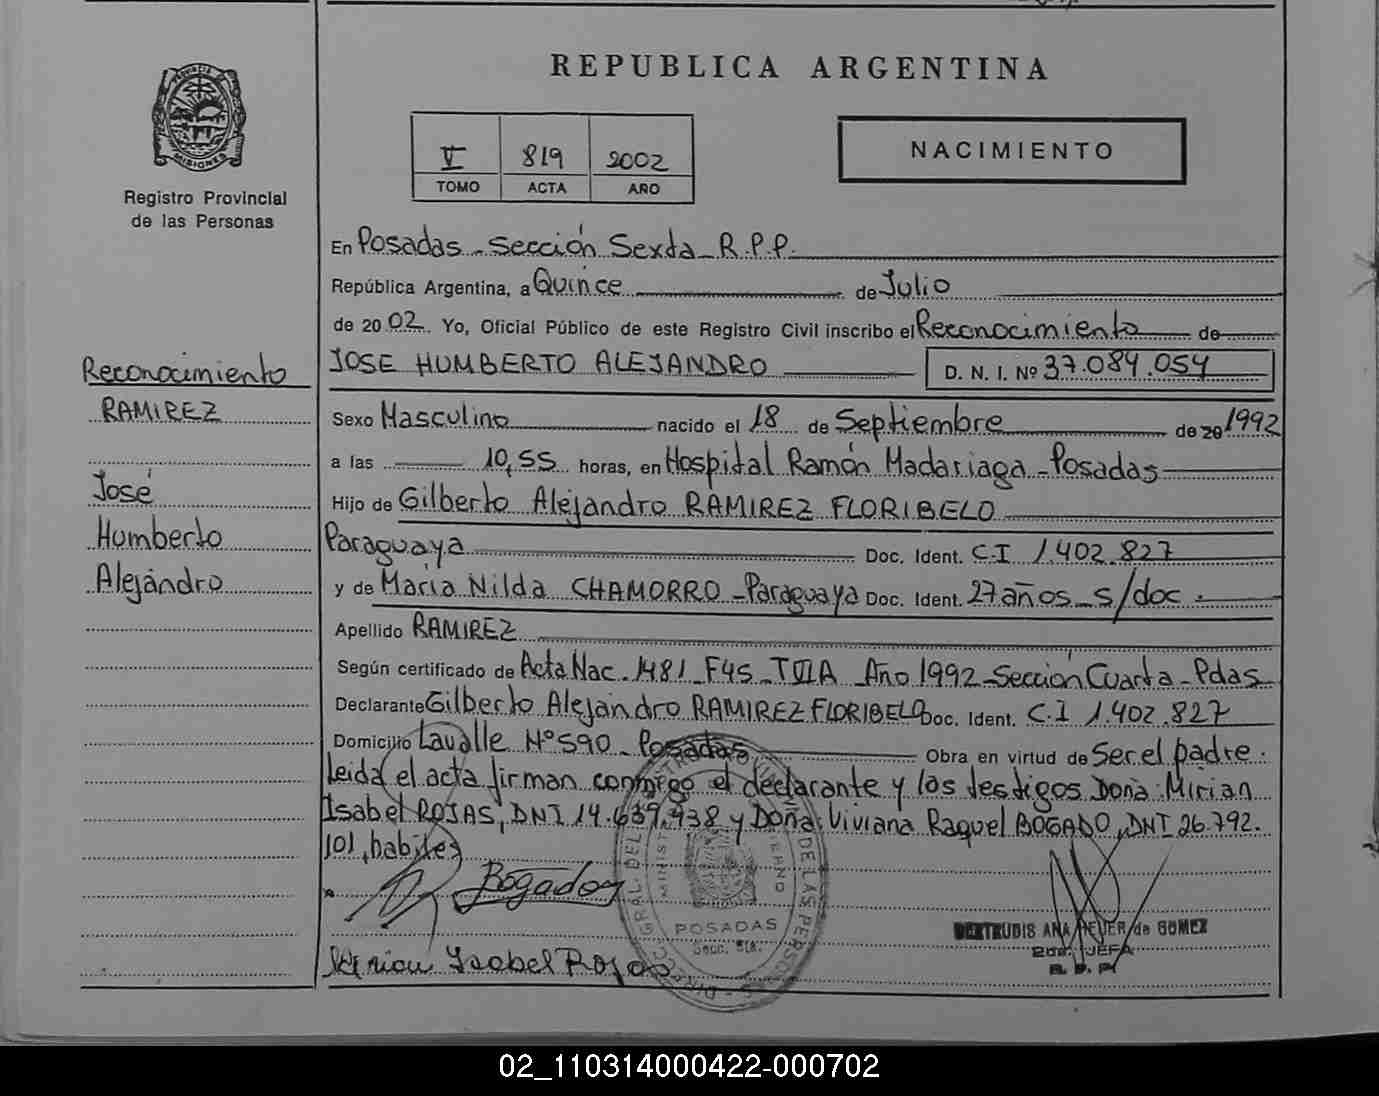 REPUBLICA ARGENTINA
PROVINCIA DE MISIONES
Registro Provincial
de las Personas
V 819 2002
TOMO ACTA AÑO
NACIMIENTO
En Posadas - Sección Sexta - R.P.P.
República Argentina, a Quince de Julio
de 2002. Yo, Oficial Público de este Registro Civil inscribo el Reconocimiento de
JOSE HUMBERTO ALEJANDRO D. N. I. Nº 37.084.054
Reconocimiento
RAMIREZ
José
Humberto
Alejandro
Sexo Masculino nacido el 18 de Septiembre de 20 1992
a las 10,55 horas, en Hospital Ramón Madariaga - Posadas
Hijo de Gilberto Alejandro RAMIREZ FLORIBELO
Paraguaya Doc. Ident. C.I 1.402.827
y de Maria Nilda CHAMORRO - Paraguaya Doc. Ident. 27 años - s/doc.
Apellido RAMIREZ
Según certificado de Acta Nac. 1481 - F45 - T VII A Año 1992 - Sección Cuarta - Pdas
Declarante Gilberto Alejandro RAMIREZ FLORIBELO Doc. Ident. C.I 1.402.827
Domicilio Lavalle Nº 590 - Posadas Obra en virtud de Ser el padre.
Leida el acta firman conmigo el declarante y los testigos Doña: Mirian
Isabel ROJAS, DNI 14.639.938 y Doña: Viviana Raquel BOGADO, DNI 26.792.
101, habiles
Bogado
POSADAS
Secc. 6ta.
GERTRUDIS ANA de GOMEZ
2da. JEFA
R. P. P.
Isabel Rojas
02_110314000422-000702